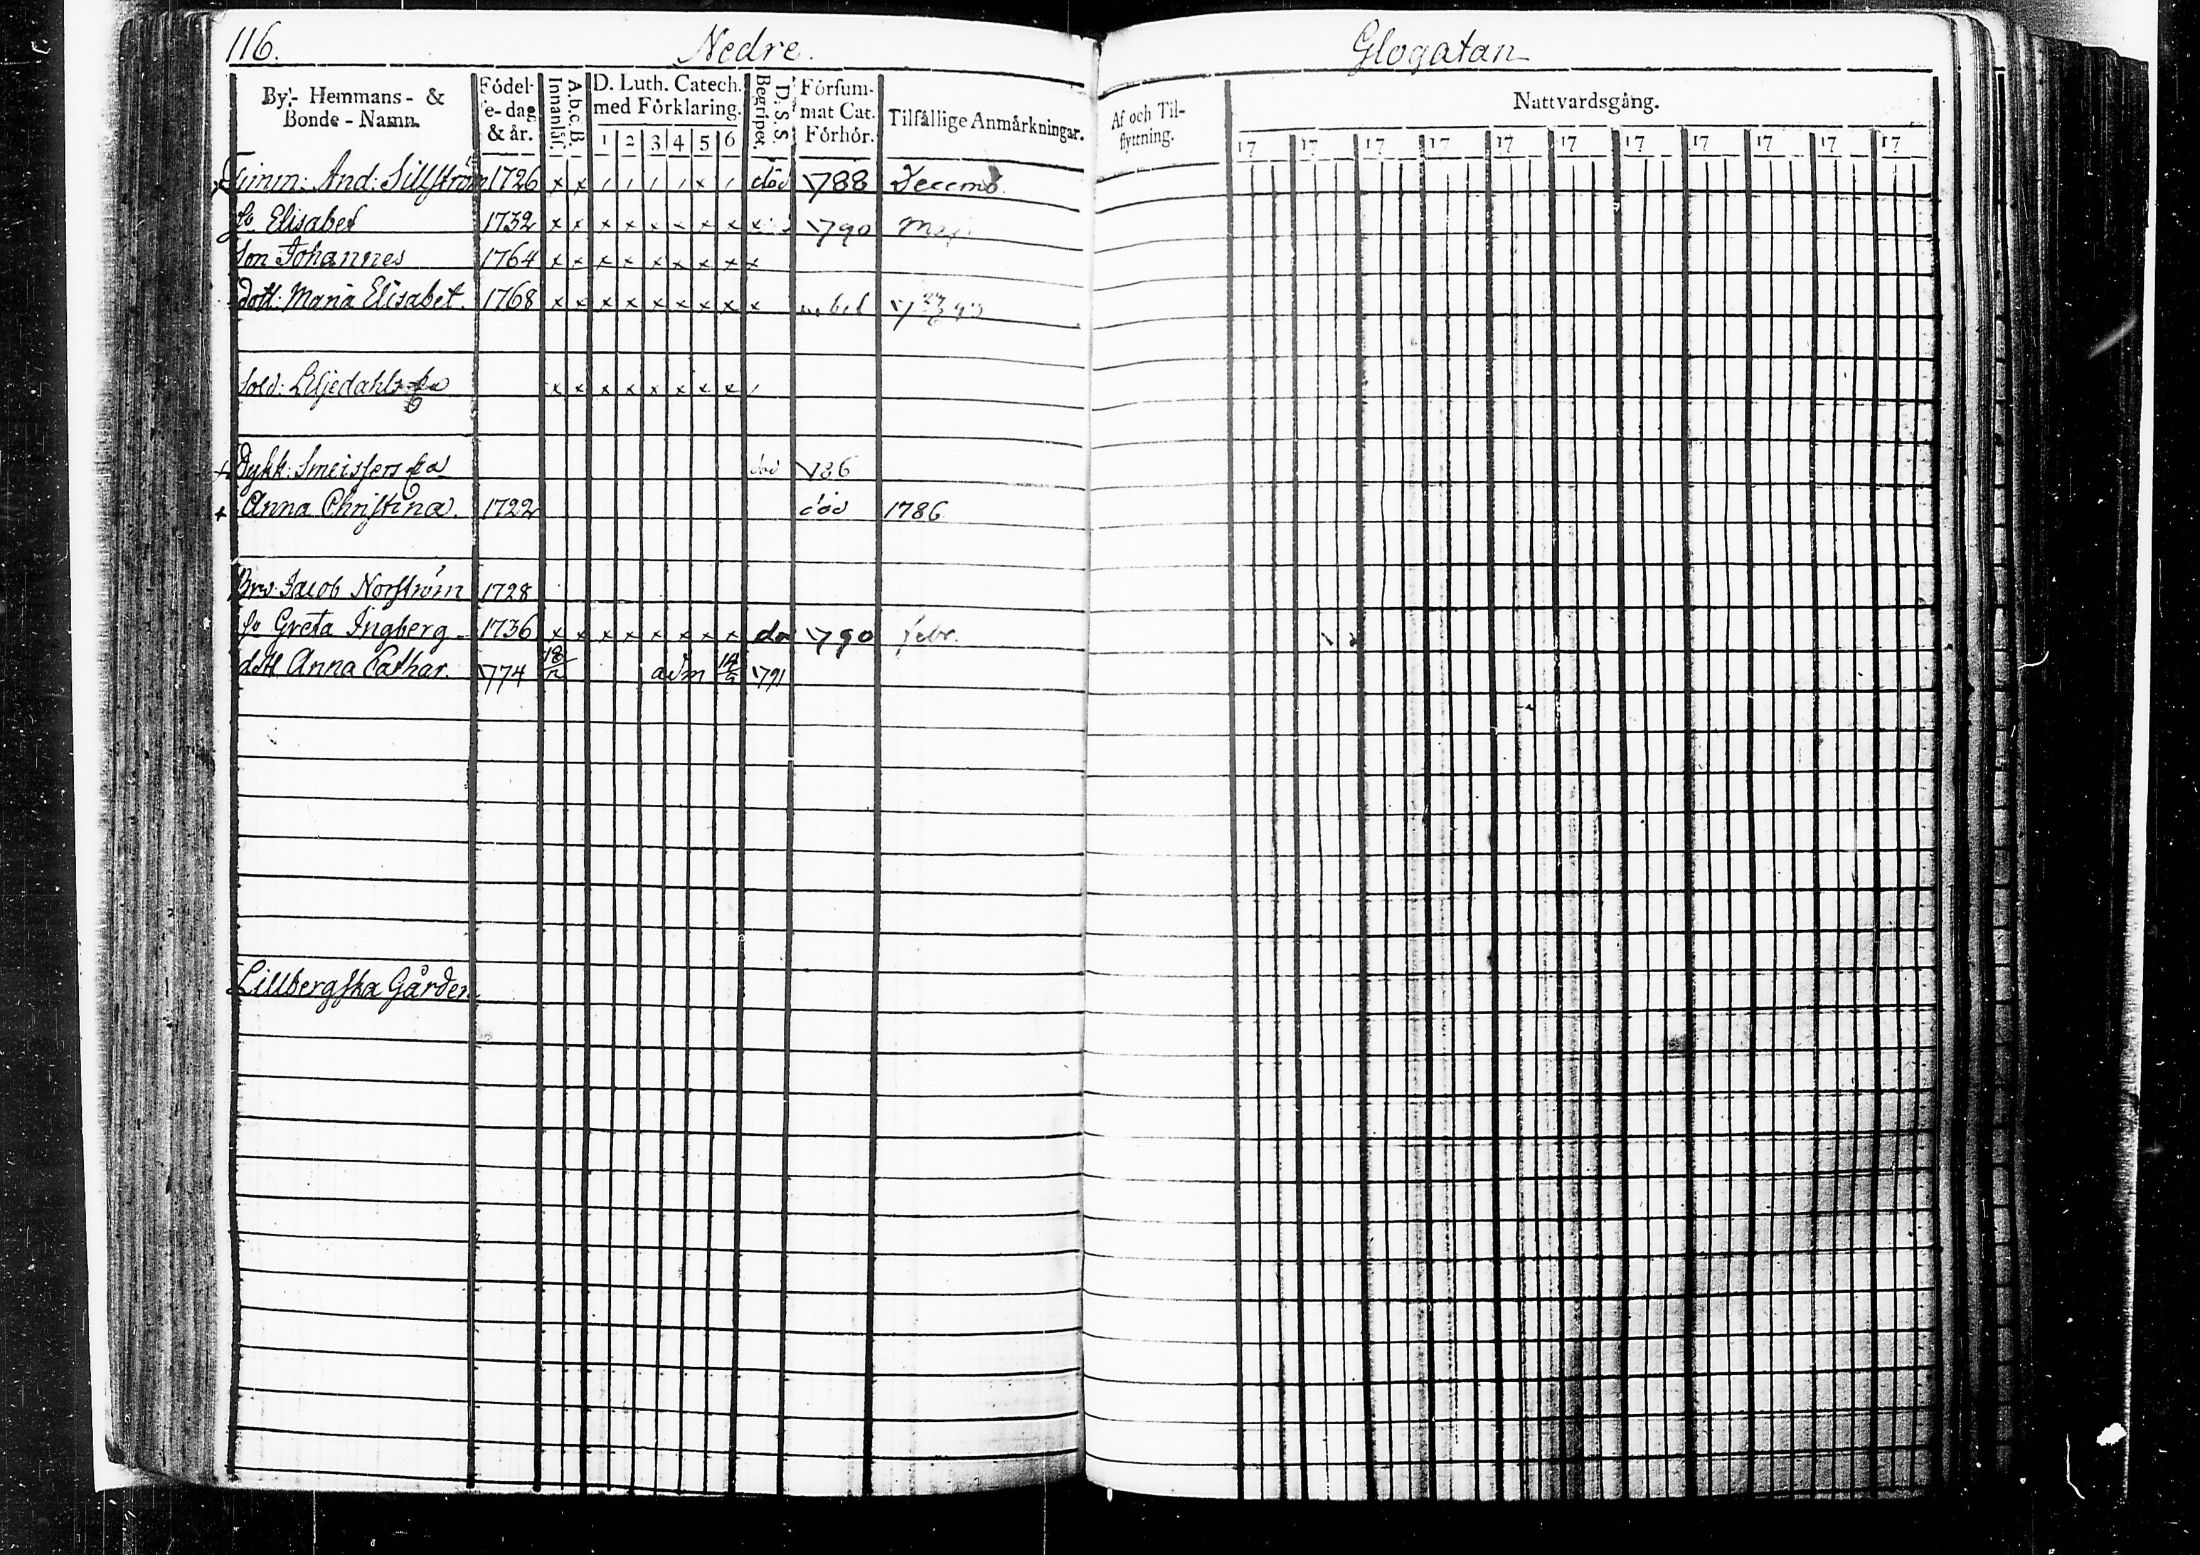 116. Nedre. Glogatan
By- Hemmans- & Bonde-Namn. Födel- e-dag & år. Innanläs. A.b.c.B. D. Luth. Catech. med Förklaring. 1 2 3 4 5 6 Begripet. D. S. S. Försum- mat Cat. Förhör. Tilfällige Anmärkningar. Af och Til- flyttning. Nattvardsgång.
17 17 17 17 17 17 17 17 17 17 17
Timm: And: Sillström 1726 x x / / / / x / död 1788 Decemb.
h. Elisabet 1732 x x x x x x x x x 1790 Maji
Son Johannes 1764 x x x x x x x x x
dott: Maria Elisabet. 1768 x x x x x x x x x
Sold: Liljedahls x x x x x x x x /
+ Dykk: död 1786
+ Anna Christina. 1722 död 1786
Jacob Norström 1728
h. Greta Ingberg 1736 x x x x x x x x dö 1790 febr.
dott Anna Cathar. 1774 adm 1791
Lillbergska Gården